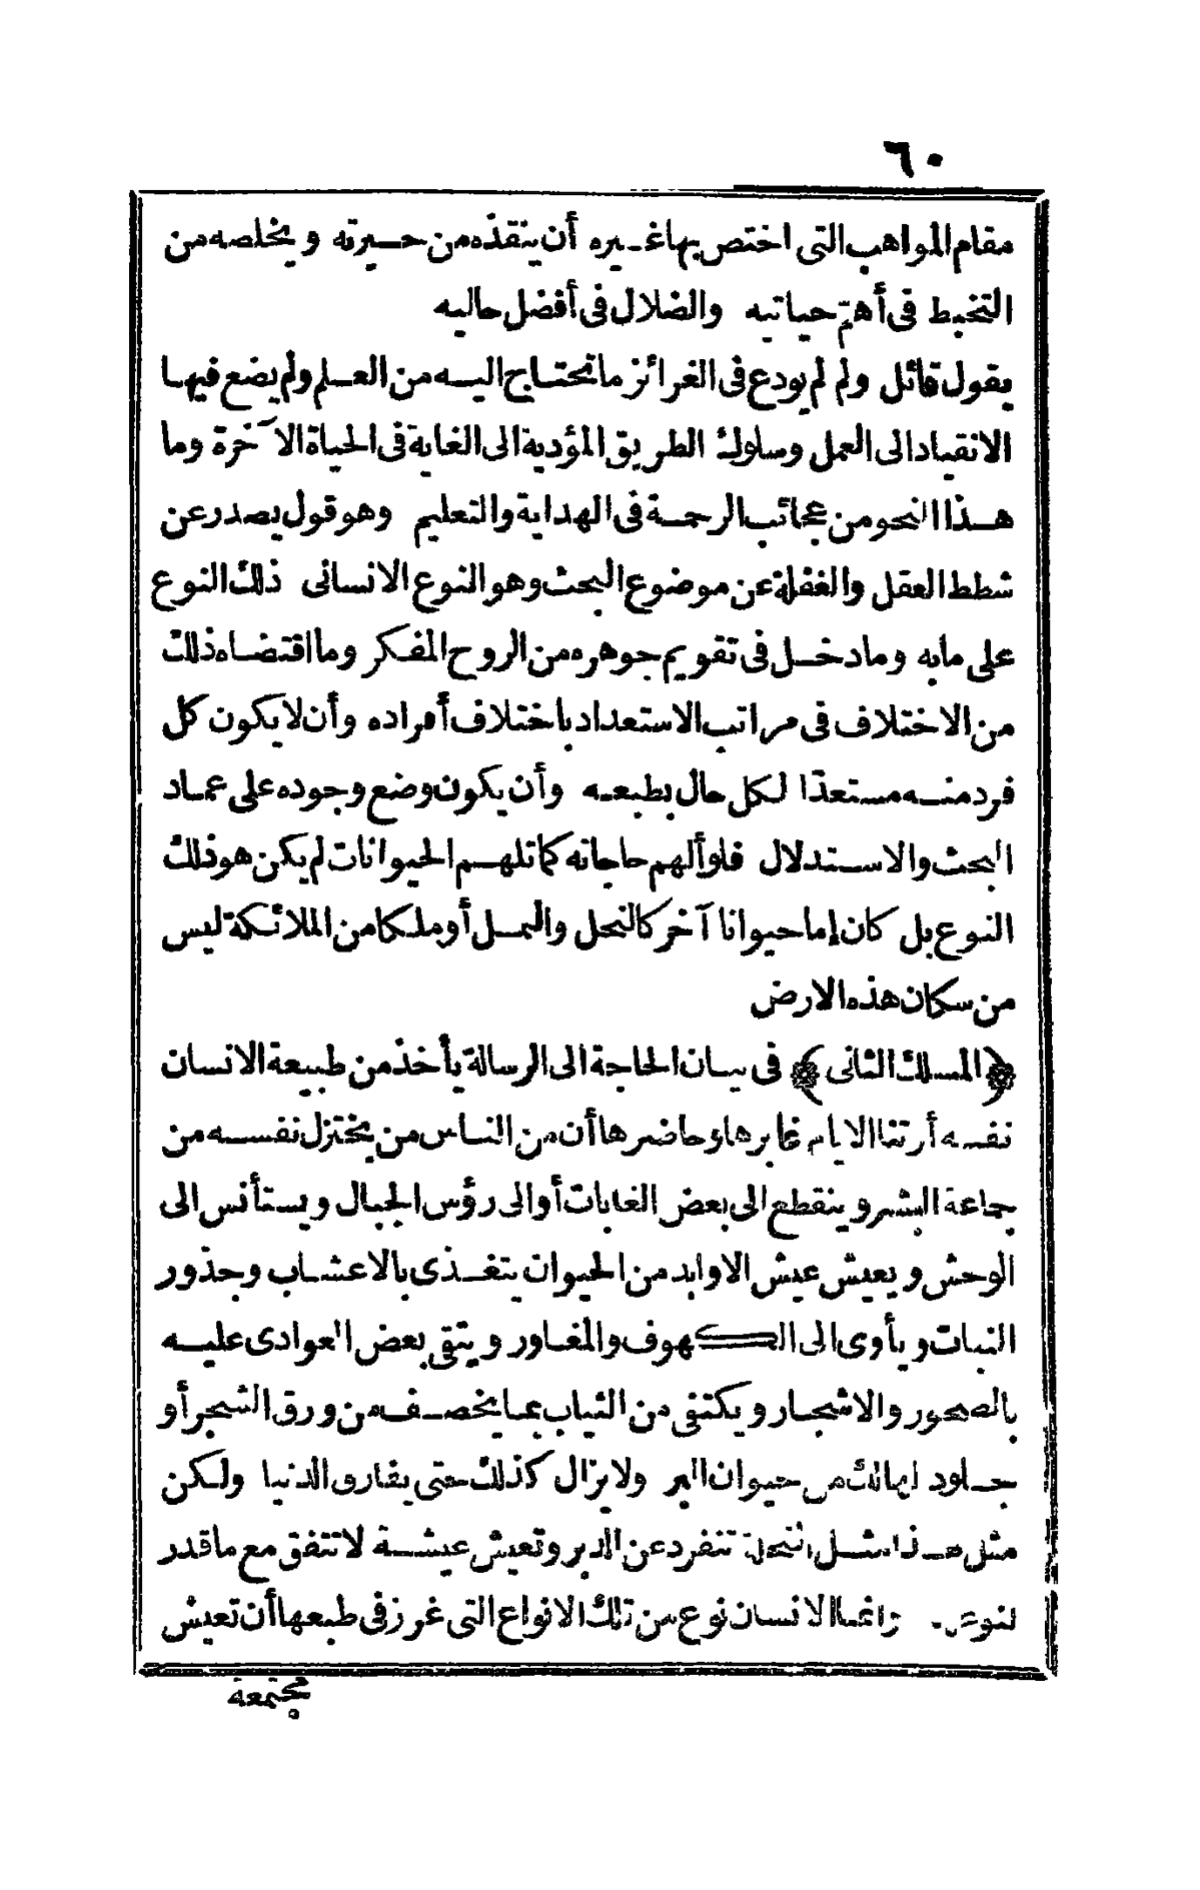 ٦٠
مقام المواهب التى اختص بها غيره أن ينقذه من حيرته ويخلصه من
التخبط فى أهمّ حياتيه والضلال فى أفضل حاليه
يقول قائل ولم لم يودع فى الغرائز ما تحتاج اليه من العلم ولم يضع فيها
الانقياد الى العمل وسلوك الطريق المؤدية الى الغاية فى الحياة الآخرة وما
هذا النحو من عجائب الرحمة فى الهداية والتعليم وهو قول يصدر عن
شطط العقل والغفلة عن موضوع البحث وهو النوع الانسانى ذلك النوع
على ما به وما دخل فى تقويم جوهره من الروح المفكر وما اقتضاه ذلك
من الاختلاف فى مراتب الاستعداد باختلاف أفراده وأن لا يكون كل
فرد منه مستعدّا لكل حال بطبعه وأن يكون وضع وجوده على عماد
البحث والاستدلال فلو ألهم حاجاته كما تلهم الحيوانات لم يكن هو ذلك
النوع بل كان إما حيوانا آخر كالنحل والنمل أو ملكا من الملائكة ليس
من سكان هذه الارض
﴿المسلك الثانى﴾ فى بيان الحاجة الى الرسالة يأخذ من طبيعة الانسان
نفسه أرتنا الايام غابرها وحاضرها أن من الناس من يختزل نفسه من
جماعة البشر وينقطع الى بعض الغابات أو الى رؤس الجبال ويستأنس الى
الوحش ويعيش عيش الاوابد من الحيوان يتغذى بالاعشاب وجذور
النبات ويأوى الى الكهوف والمغاور ويتقى بعض العوادى عليه
بالصخور والاشجار ويكتفى من الثياب بما يخصف من ورق الشجر أو
جلود الهالك من حيوان البر ولا يزال كذلك حتى يفارق الدنيا ولكن
مثل هذا مثل النحلة تنفرد عن الدبر وتعيش عيشة لا تتفق مع ما قدر
لنوعها وانما الانسان نوع من تلك الانواع التى غرز فى طبعها أن تعيش
مجتمعة